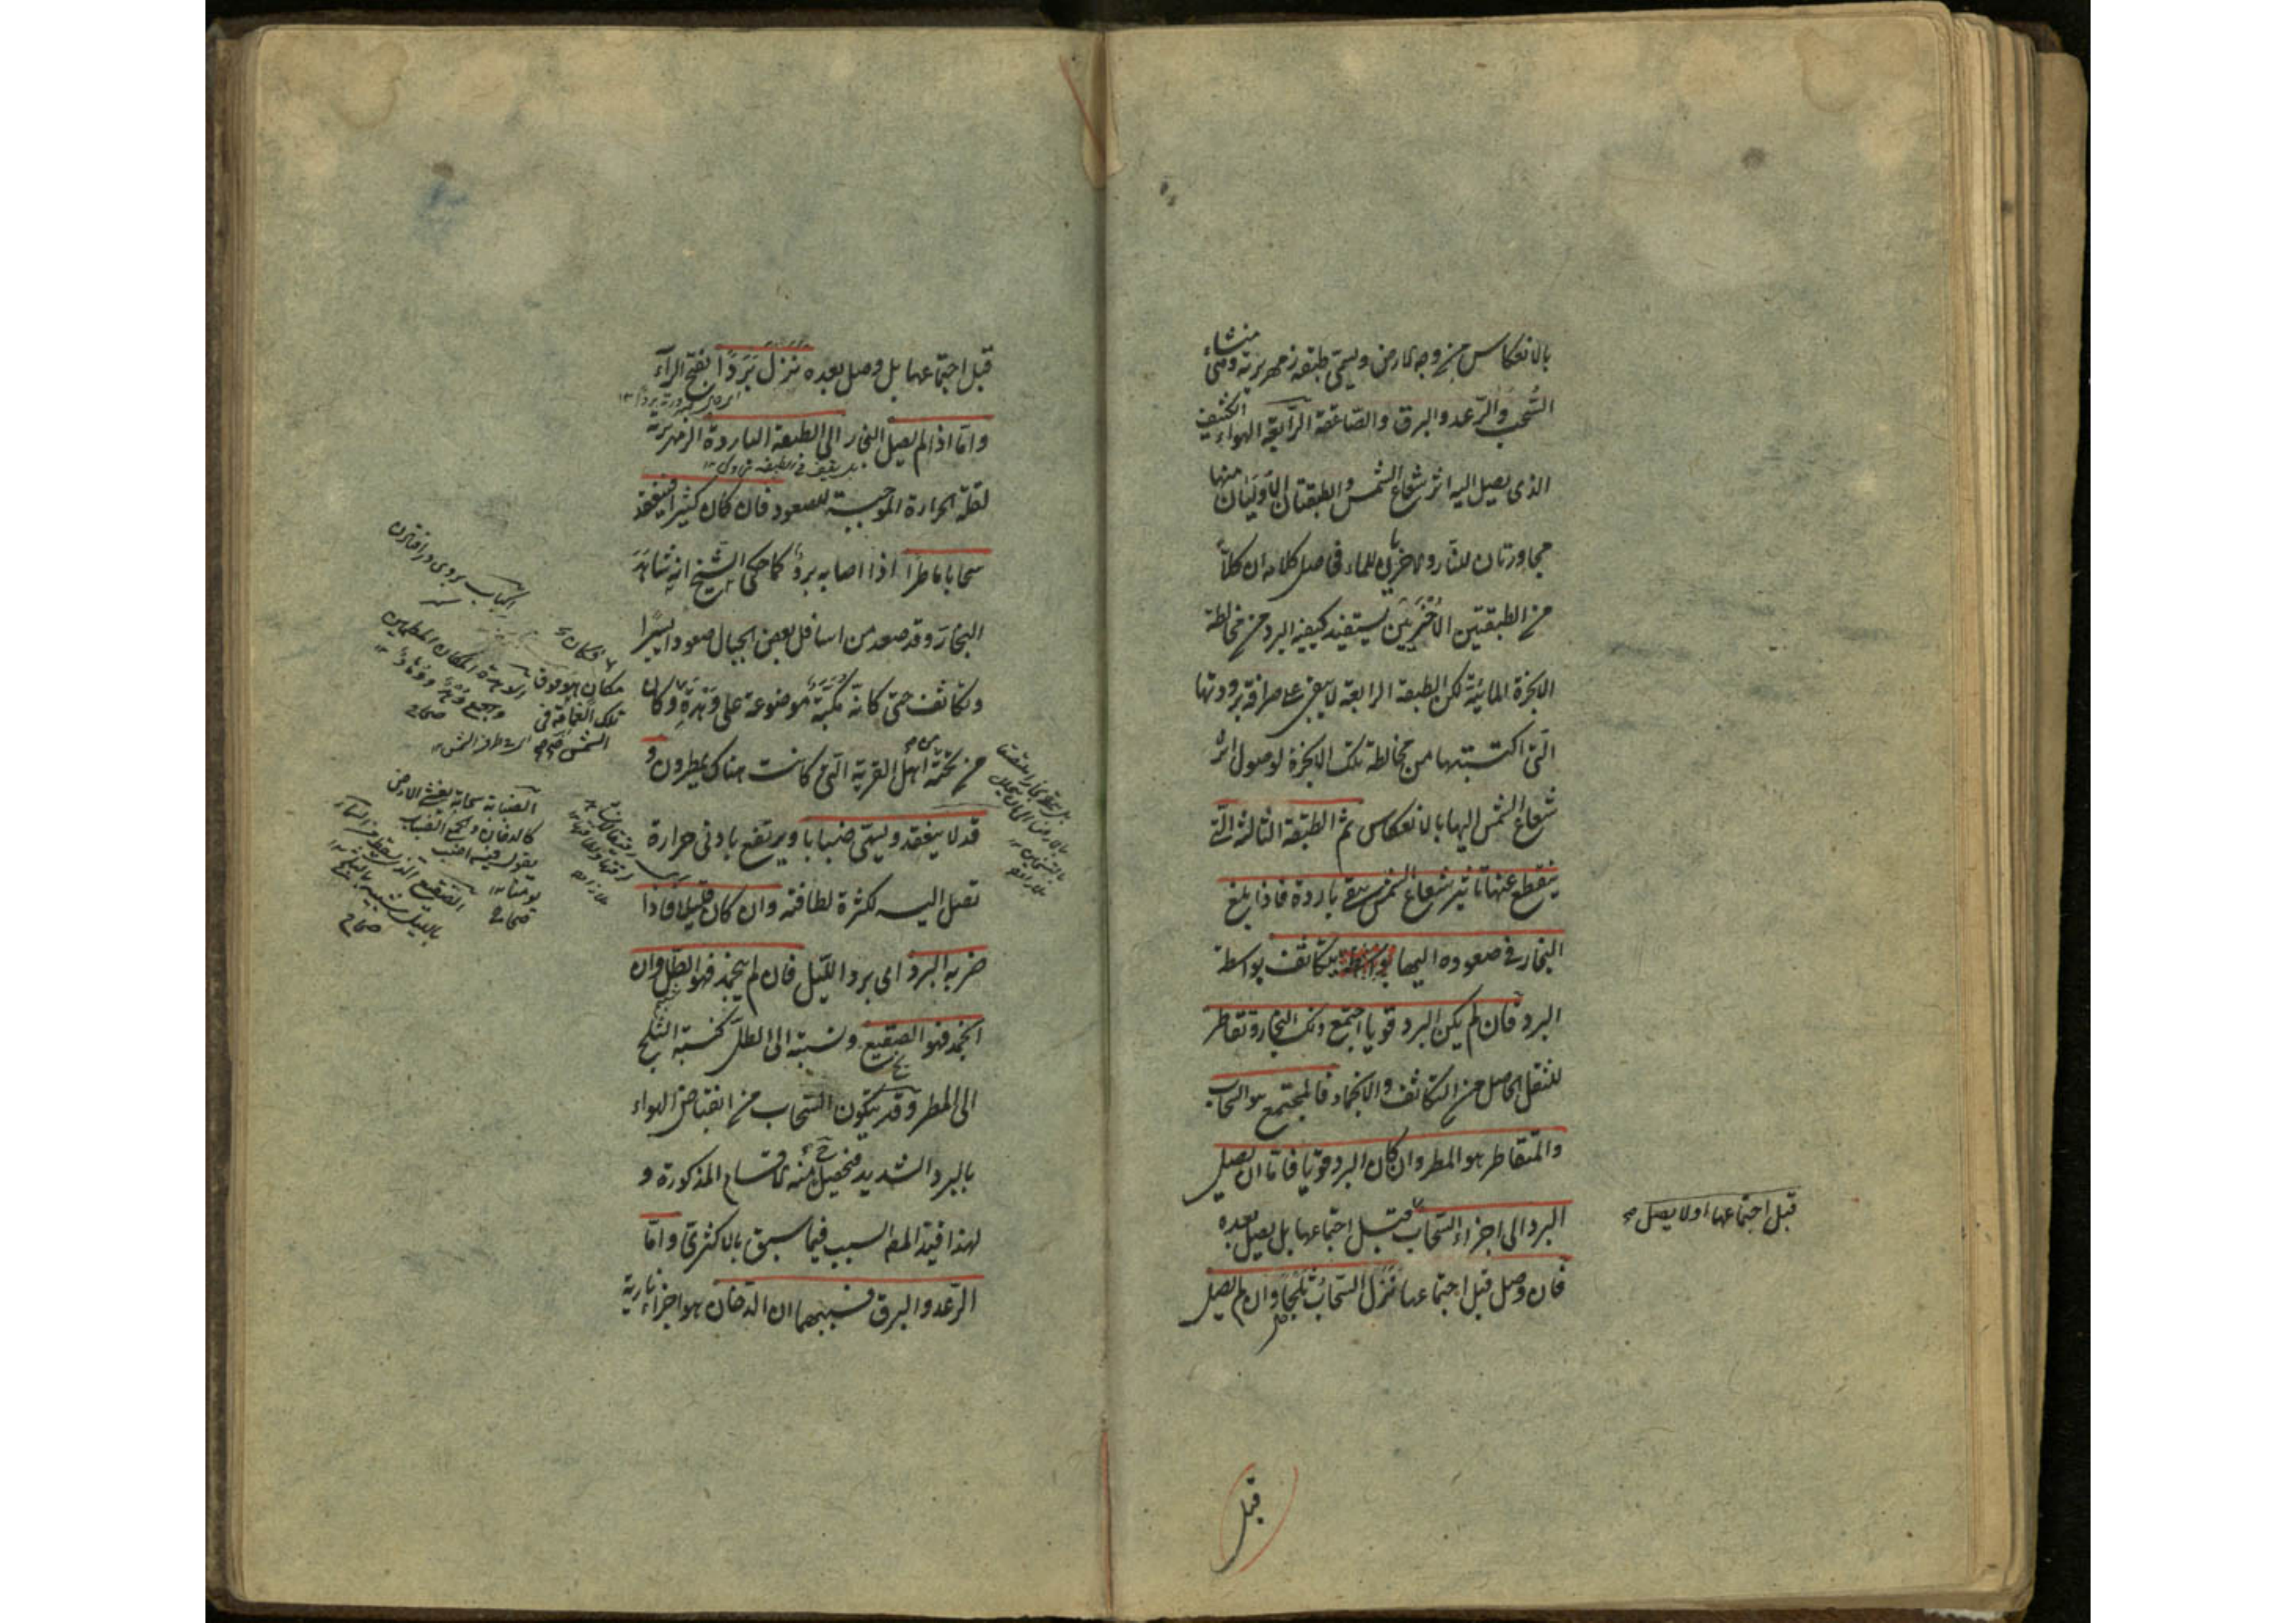 بالانعكاس من وجه الارض ويسمى طبقة زمهريرية وهى منشاء
السُّحب والرّعد والبرق والصّاعقة الرّابعة الهواء الكثيف
الذى يصل اليه اثر شعاع الشمس والطبقتان الاوليان منها
مجاورتان للنار والاخريان للماء فحاصل كلامه ان كلاً
من الطبقتين الاُخْرَيَيْن يستفيد كيفية البرد من مخالطة
الابخرة المائيّة لكن الطبقة الرابعة لا يبقى على صرافة برودتها
الّتى اكتسبتها من مخالطة تلك الابخرة لوصول اثر
شعاع الشمس اليها بالانعكاس ثم الطبقة الثالثة الّتى
ينقطع عنها تاثير شعاع الشمس يبقى باردة فاذا بلغ
البخار فى صعوده اليها يتكاثف بواسطة
البرد فان لم يكن البرد قويا اجتمع ذلك البخار وتقاطر
للثقل الحاصل من التكاثف والانجماد فالمجتمع هو السحاب
والمتقاطر هو المطر وان كان البرد قويا فاما ان يصل
البرد الى اجزاء السّحاب قبل اجتماعها بل يصل بعده
قبل اجتماعها او لا يصل صح
فان وصل قبل اجتماعها نَزَلَ السّحابُ ثَلْجاً وان لم يصل
قبل
قبل اجتماعها بل وصل بعده نزل بَرَداً بفتح الرآء
وامّا اذا لم يصل البخار الى الطبقة الباردة الزمهريرية
لقلة الحرارة الموجبة للصعود فان كان كثيرا فقد ينعقد
سحابا ماطراً اذا اصابه بردٌ كما حكى الشّيخ انه شاهَدَ
البخارَ وقد صعد من اسافل بعض الجبال صعودا يسيرًا
وتكاثف حتى كانّه مكبّة موضوعة على وَهْدَةٍ وكان
من تحته اهل القرية الّتى كانت هناك يمطرون و
قد لا ينعقد ويسمّى ضبابا ويرتفع بادنى حرارة
تصل اليه لكثرة لطافته وان كان قليلا فاذا
ضربه البرد اى برد اللّيل فان لم ينجمد فهو الطّل وان
انجمد فهو الصقيع ونسبته الى الطلّ كنسبة الثلج
الى المطر وقد يتكون السّحاب من انقباض الهواء
بالبرد الشديد فيحصل منه الاقسام المذكورة و
لهذا قيّد المصـ السبب فيما سبق بالاكثرىّ وامّا
الرّعد والبرق فسببهما ان الدخان هو اجزاء نارية
مكان هو فوق
تلك الغمامة فى
الشمس صح
الضبابة سحابة يغشى الارض
كالدخان والجمع الضباب
يقول
يومنا ١٢
صحاح
الصقيع الذى يسقط من السماء
بالليل شبيه بالثلج ١٢
صحاح